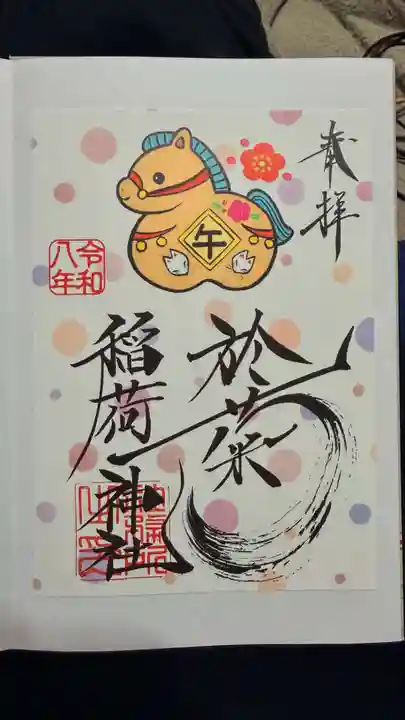 奉拝
於菊
稲荷神社
午
令和
八年